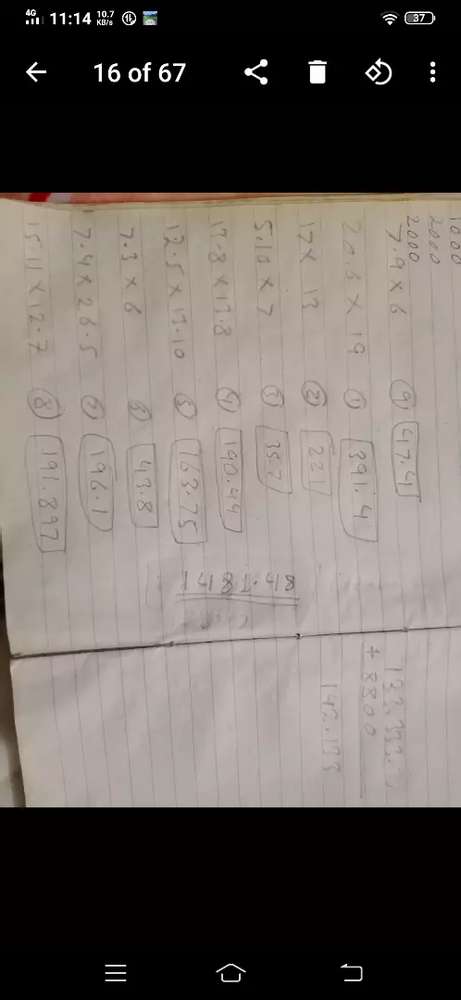 4G 11:14 10.7 KB/s 37
16 of 67
1000
2000
2000
7.9 x 6 ⑨ 47.4
20.6 x 19 ① 391.4
17 x 13 ② 221
5.10 x 7 ③ 35.7
13.8 x 13.8 ④ 190.44
12.5 x 13.10 ⑤ 163.75
7.3 x 6 ⑥ 43.8
7.4 x 26.5 ⑦ 196.1
15.11 x 12.7 ⑧ 191.897
1481.48
+ 8800